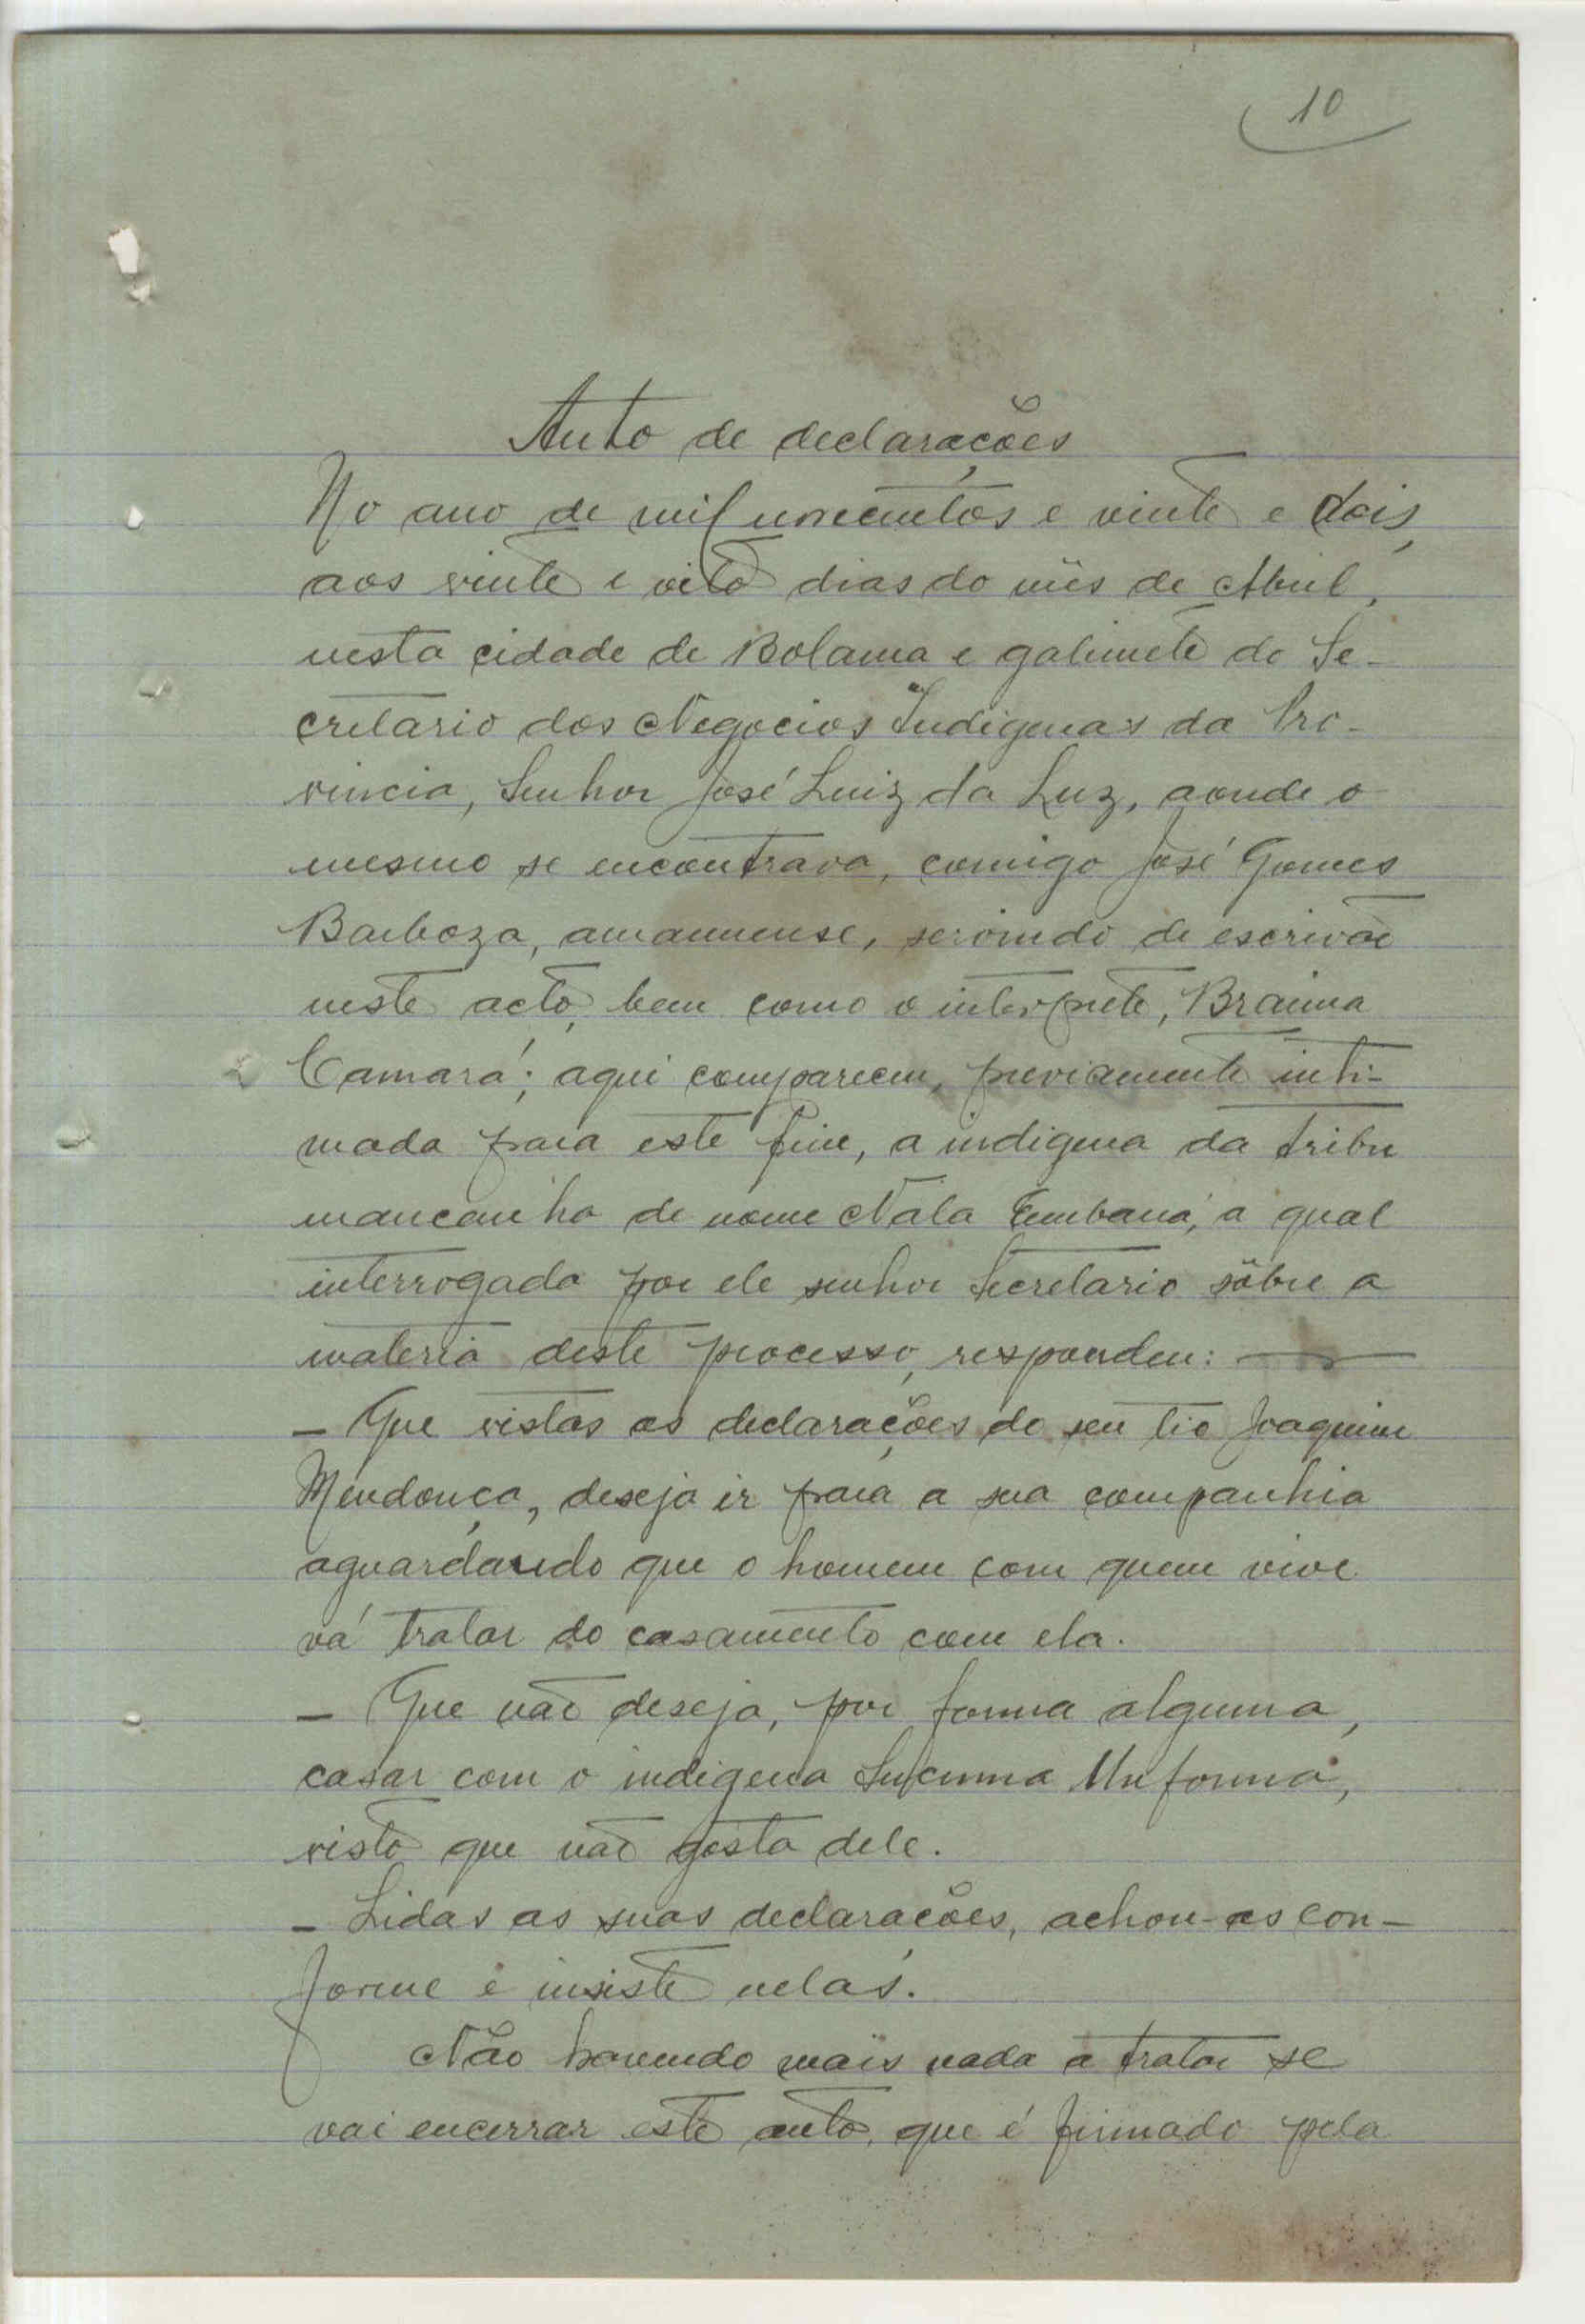 10
Auto de declarações
No ano de mil novecentos e vinte e dois,
aos vinte e oito dias do mês de Abril,
nesta cidade de Bolama e gabinete do Se-
cretario dos Negocios Indigenas da Pro-
vincia, Senhor José Luiz da Luz, aonde o
mesmo se encontrava, comigo José Gomes
Barboza, amanuense, servindo de escrivão
neste acto, bem como o interprete, Braima
Camará; aqui compareceu, previamente inti-
mada para este fim, a indigena da tribu
mancanha de nome Nala a qual
interrogada por ele senhor Secretario sôbre a
materia deste processo, respondeu:
- Que vistas as declarações do seu tio Joaquim
Mendonça, deseja ir para a sua companhia
aguardando que o homem com quem vive
vá tratar do casamento com ela.
- Que não deseja, por forma alguma,
casar com o indigena
visto que não gosta dele.
- Lidas as suas declarações, achou-as con-
forme e insiste nelas.
Não havendo mais nada a tratar se
vai encerrar este auto, que é firmado pela